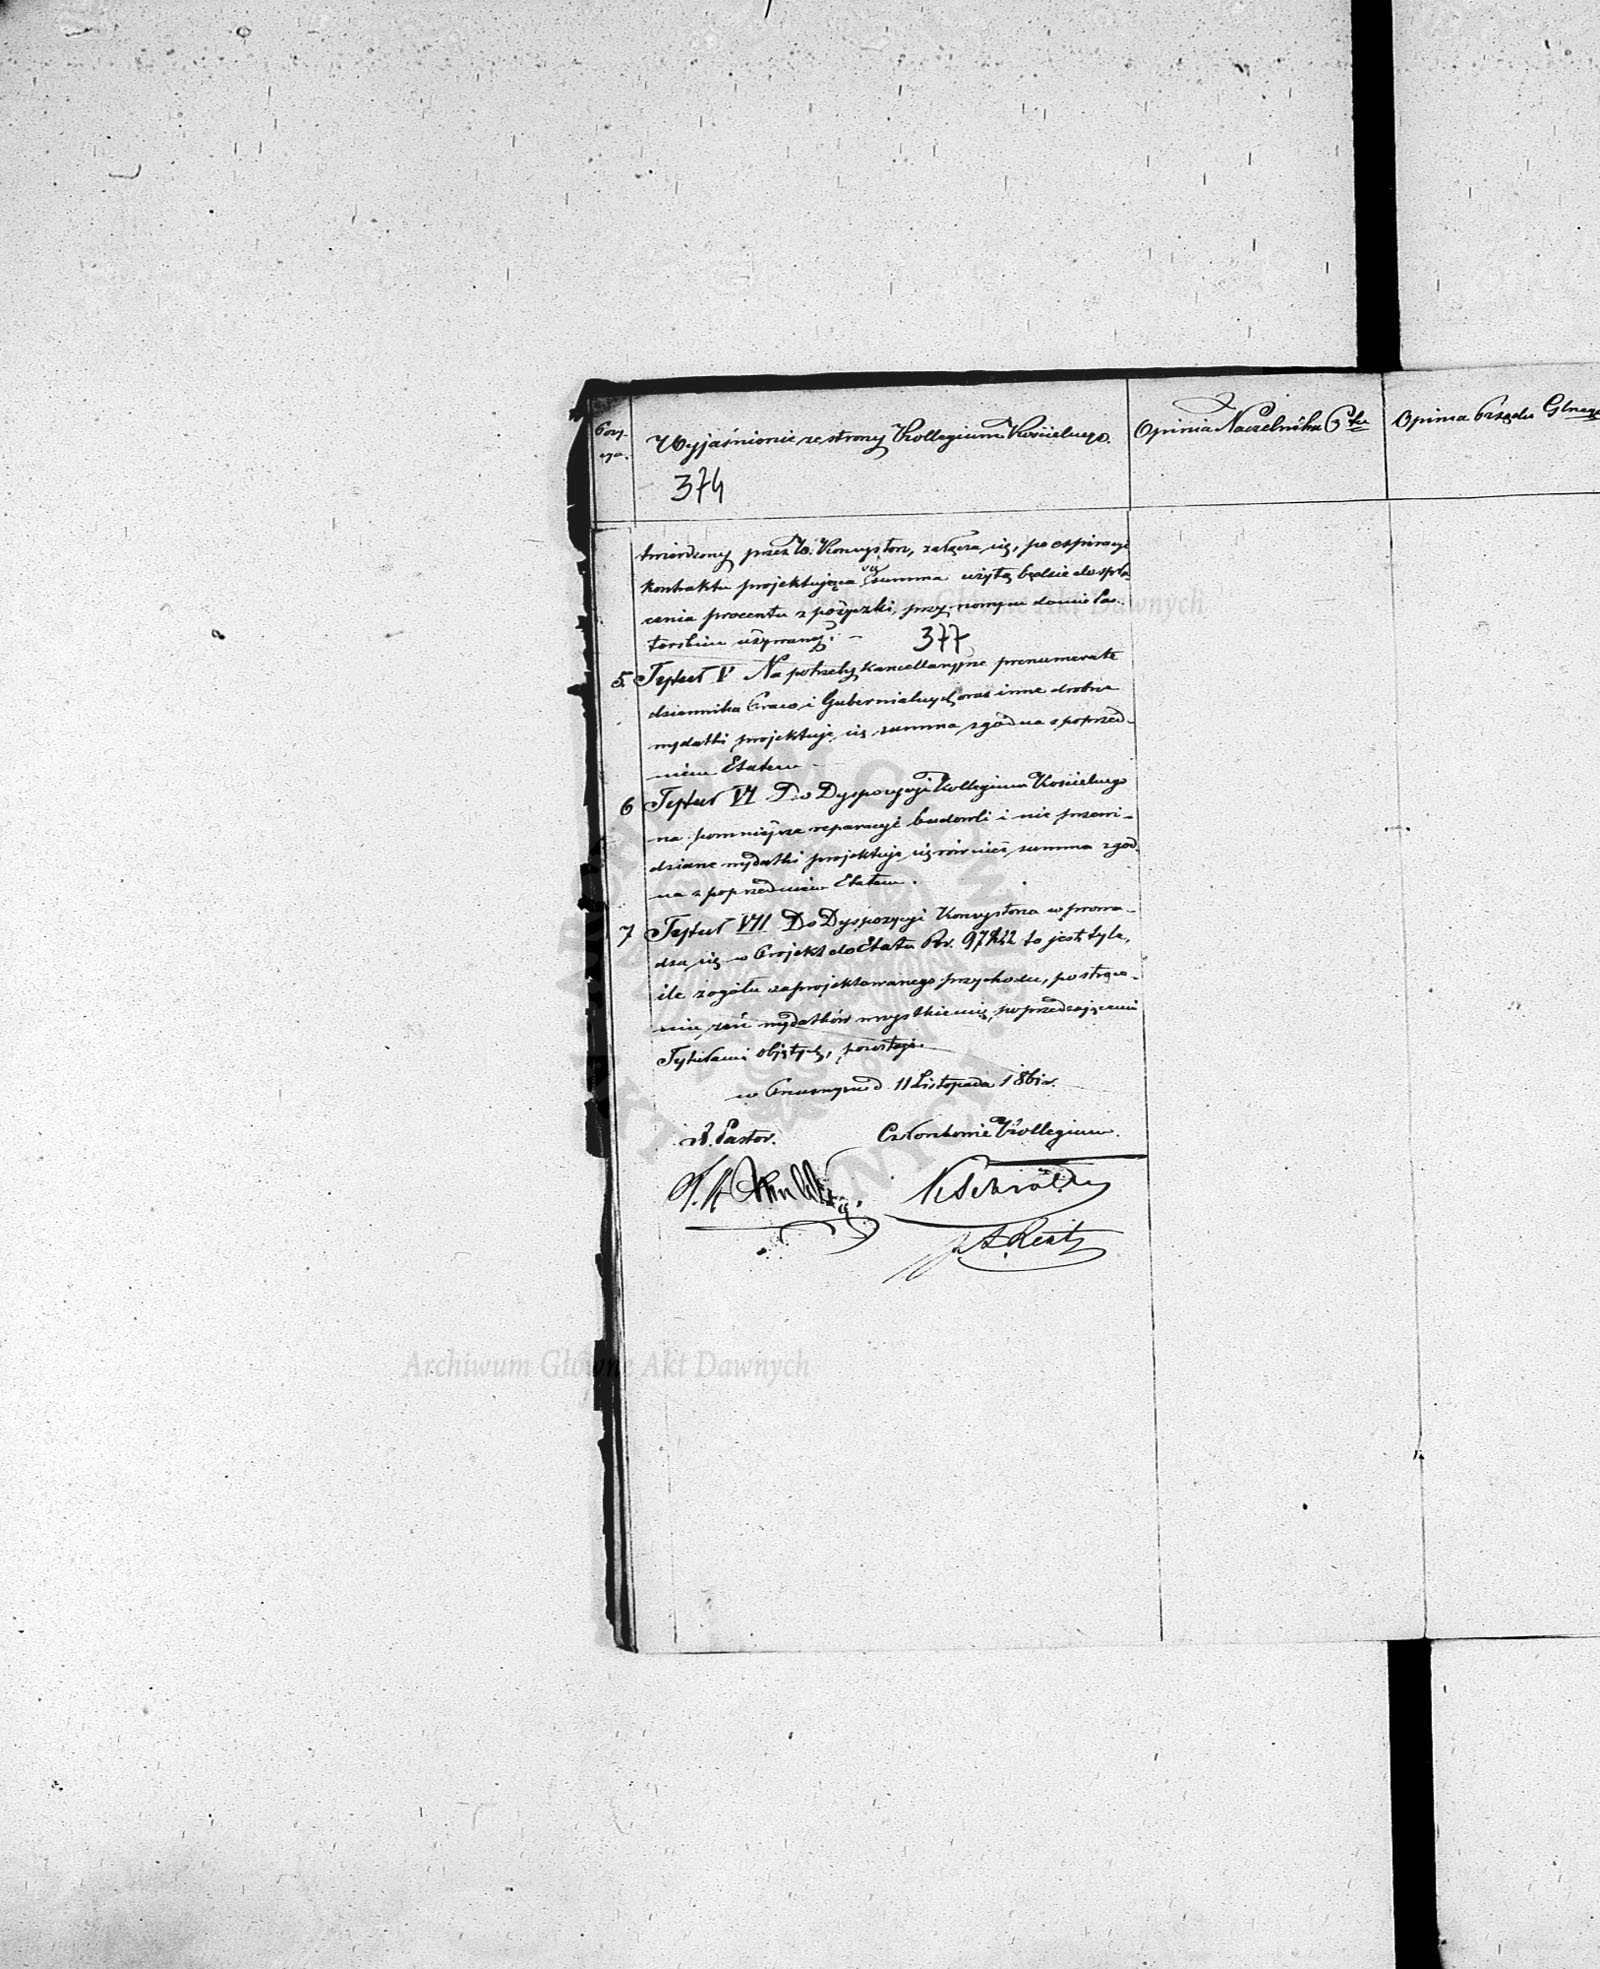 Pozy-
cya.
Wyjaśnienie ze strony Kollegium Kościelnego.
Opinia Naczelnika Ptu
Opinia Rządu Glnego
374
twierdzony przez W. Konsystorz, załącza się, po expiracyi
kontraktu projektująca się summa użytą będzie do spła-
cenia procentu z pożyczki, przy nowym domie Pas-
torskim używanej. —
377
5. Tytuł V Na potrzeby kancellaryjne prenumerate
dziennika Praw i Gubernialnych oraz inne drobne
wydatki projektuje się summa zgodna z poprzed-
niem Etatem —
6 Tytuł VI Do Dyspozycyi Kollegium Kościelnego
na pomniejsze reparacye budowli i nie przewi-
dziane wydatki projektuje się również summa zgod-
na z poprzedniem Etatem.
7 Tytuł VII Do Dyspozycyi Konsystorza wprowa-
dza się w Projekt do Etatu Rs. to jest tyle,
ile z ogółu zaprojektowanego przychodu, po strące-
niu zeń wydatków wszystkiemi poprzedzającemi
Tytułami objętych, pozostaje.
w d. 11 Listopada 186
X. Pastor.
Członkowie Kollegium.
Archiwum Główne Akt Dawnych
Archiwum Główne Akt Dawnych